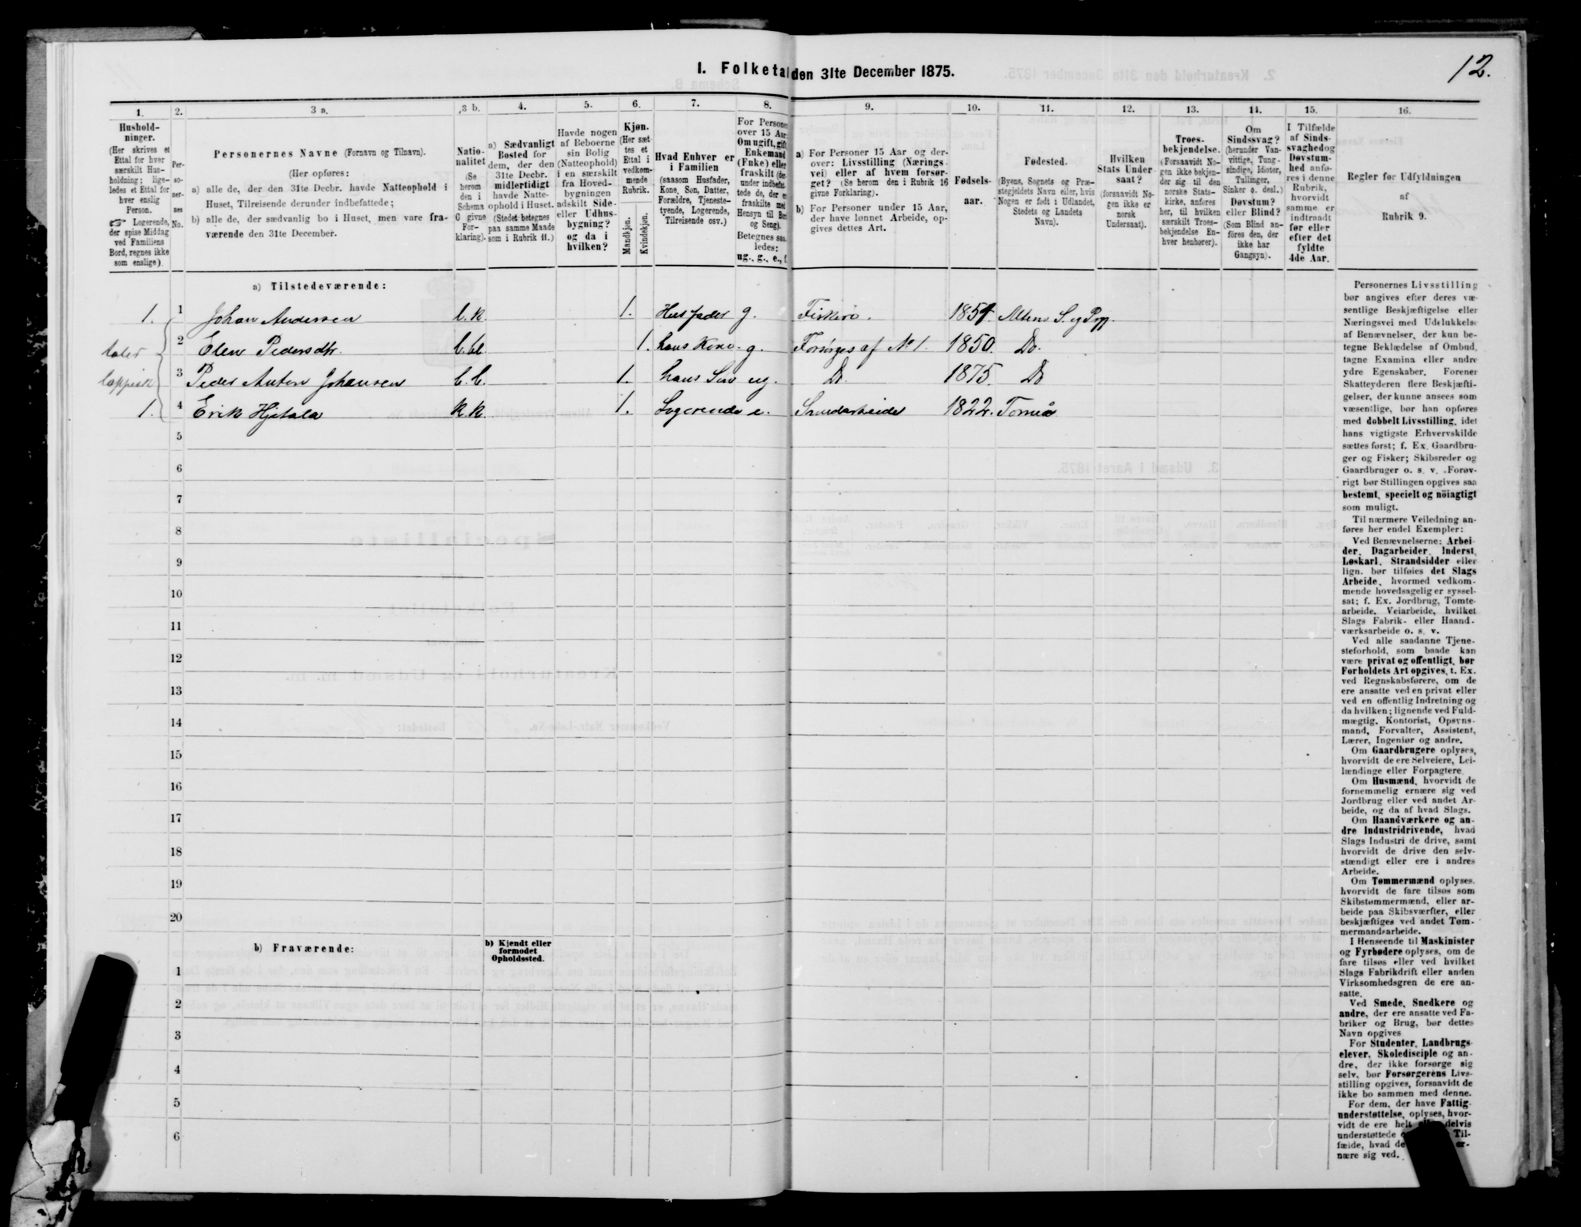 12.
1. Folketal den 31te December 1875.
1.
2.
3 a.
3 b.
4.
5.
6.
7.
8.
9.
10.
11.
12.
13.
14.
15.
16.
Husholdninger.
(Her skrives et
Ettal for hver
særskilt Husholdning; ligeledes et Ettal for
hver enslig
Person.
☞ Logerende,
der spise Middag
ved Familiens
Bord, regnes ikke
som enslige).
Personernes
No.
Personernes Navne (Fornavn og Tilnavn).
(Her opføres:
a) alle de, der den 31te Decbr. havde Natteophold i
Huset, Tilreisende derunder indbefattede;
b) alle de, der sædvanlig bo i Huset, men vare fraværende den 31te December.
Nationalitet
(Se
herom
den i
Schema
C givne
Forklaring).
a) Sædvanligt
Bosted for
dem, der den
31te Decbr.
midlertidigt
havde Natteophold i Huset.
(Stedet betegnes
paa samme Maade
som i Rubrik 11.)
Havde nogen
af Beboerne
sin Bolig
(Natteophold)
i en særskilt
fra Hovedbygningen
adskilt Side-
eller Udhusbygning?
og da i
hvilken?
Kjøn.
(Her sættes et
Ettal i
vedkommende
Rubrik.
Mandkjøn.
Kvindekjøn.
Hvad Enhver er
i Familien
(saasom Husfader,
Kone, Søn, Datter,
Forældre, Tjenestetyende, Logerende,
Tilreisende osv.)
For Personer
over 15 Aar
Om ugift, gift
Enkemand
(Enke) eller
fraskilt
Betegnes saaledes:
ug., g., e., f.
a) For Personer 15 Aar og derover: Livsstilling (Næringsvei) eller af hvem forsørget? (Se herom den i Rubrik 16
givne Forklaring).
b) For Personer under 15 Aar,
der have lønnet Arbeide, opgives dettes Art.
Fødselsaar.
Fødested.
(Byens, Sognets og Præstegjeldets Navn eller, hvis
Nogen er født i Udlandet,
Stedets og Landets
Navn).
Hvilken
Stats Undersaat?
(forsaavidt Nogen ikke er
norsk
Undersaat).
Troesbekjendelse.
(Forsaavidt Nogen ikke bekjender sig til den
norske Statskirke, anføres
her, til hvilken
særskilt Troesbekjendelse Enhver henhører).
Om
Sindssvag?
(herunder Vanvittige, Tungsindige, Idioter,
Tullinger,
Sinker o. desl.)
Døvstum?
eller Blind?
(Som Blind anføres den, der
ikke har
Gangsyn).
I Tilfælde
af Sindssvaghed og
Døvstumhed anføres i denne
Rubrik,
hvorvidt
samme er
indtraadt
før eller
efter det
fyldte
4de Aar.
Regler for Udfyldningen
af
Rubrik 9.
a) Tilstedeværende:
1. 1 Johan Andersen b.k 1. Husfader g. Fisker. 1851. Altens S. og Pgj.
2 Elen Pedersdtr. 1. hans Kone g. Forsørges af No 1. 1850. Do.
taler
lappisk
3 Peder Anton Johansen b.b. 1. hans Søn ug. Do 1875. Do
1. 4 Erik Hjetala k.k. 1. Logerende e. 1822. Torneå
5
6
7
8
9
10
11
12
13
14
15
16
17
18
19
20
b) Fraværende:
b) Kjendt eller
formodet
Opholdssted.
1
2
3
4
5
6
Personernes Livsstilling
bør angives efter deres væsentlige Beskjæftigelse eller
Næringsvei med Udelukkelse
af Benævnelser, der kun betegne Beklædelse af Ombud,
tagne Examina eller andre
ydre Egenskaber. Forener
Skatteyderen flere Beskjæftigelser, der kunne ansees som
væsentlige, bør han opføres
med dobbelt Livsstilling, idet
hans vigtigste Erhvervskilde
sættes først; f. Ex. Gaardbruger og Fisker; Skibsreder og
Gaardbruger o. s. v. Forøvrigt bør Stillingen opgives saa
bestemt, specielt og nøiagtigt
som muligt.
Til nærmere Veiledning anføres her endel Exempler:
Ved Benævnelserne: Arbeider, Dagarbeider, Inderst,
Løskarl, Strandsidder eller
lign. bør tilføies det Slags
Arbeide, hvormed vedkommende hovedsagelig er sysselsat; f. Ex. Jordbrug, Tomtearbeide, Veiarbeide, hvilket
Slags Fabrik- eller Haandværksarbeide o. s. v.
Ved alle saadanne Tjenesteforhold, som baade kan
være privat og offentligt, bør
Forholdets Art opgives, t. Ex.
ved Regnskabsførere, om de
ere ansatte ved en privat eller
ved en offentlig Indretning og
da hvilken; lignende ved Fuldmægtig, Kontorist, Opsynsmand, Forvalter, Assistent,
Lærer, Ingeniør og andre.
Om Gaardbrugere oplyses,
hvorvidt de ere Selveiere, Leilændinge eller Forpagtere.
Om Husmænd, hvorvidt de
fornemmelig ernære sig ved
Jordbrug eller ved andet Arbeide, og da af hvad Slags.
Om Haandværkere og andre Industridrivende, hvad
Slags Industri de drive, samt
hvorvidt de drive den selvstændigt eller ere i andres
Arbeide.
Om Tømmermænd oplyses,
hvorvidt de fare tilsøs som
Skibstømmermænd, eller arbeide paa Skibsværfter, eller
beskjæftiges ved andet Tømmermandsarbeide.
I Henseende til Maskinister
og Fyrbødere oplyses, om de
fare tilsøs eller ved hvilket
Slags Fabrikdrift eller anden
Virksomhedsgren de ere ansatte.
Ved Smede, Snedkere og
andre, der ere ansatte ved Fabriker og Brug, bør dettes
Navn opgives
For Studenter, Landbrugselever, Skoledisciple og andre, der ikke forsørge sig
selv, bør Forsørgerens Livsstilling opgives, forsaavidt de
ikke bo sammen med denne.
For dem, der have Fattigunderstøttelse, oplyses, hvorvidt de ere helt eller delvis
understøttede